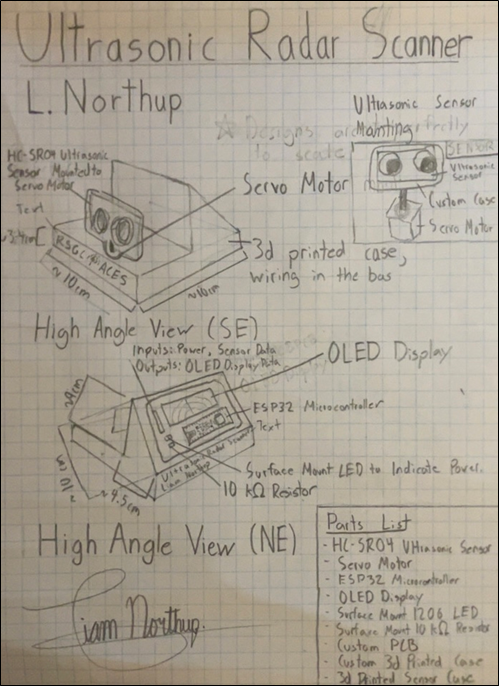 Ultrasonic Radar Scanner
L. Northup
Ultrasonic Sensor
Mounting
☆ Designs are
to scale
SENSOR
Ultrasonic
Sensor
Custom Case
Servo Motor
HC-SR04 Ultrasonic
Sensor Mounted to
Servo Motor
Text
Servo Motor
~3.4cm
RSGC ACES
3d printed case,
wiring in the bas
~10cm
~10cm
High Angle View (SE)
Inputs: Power, Sensor Data
Outputs: OLED Display Data
OLED Display
ESP32 Microcontroller
Text
Ultrasonic Radar Scanner
Liam Northup
Surface Mount LED to Indicate Power.
10 kΩ Resistor
~10 cm
~4.5cm
High Angle View (NE)
Liam Northup.
Parts List
- HC-SR04 Ultrasonic Sensor
- Servo Motor
- ESP32 Microcontroller
- OLED Display
- Surface Mount 1206 LED
- Surface Mount 10 kΩ Resistor
- Custom PCB
- Custom 3d Printed Case
- 3d Printed Sensor Case